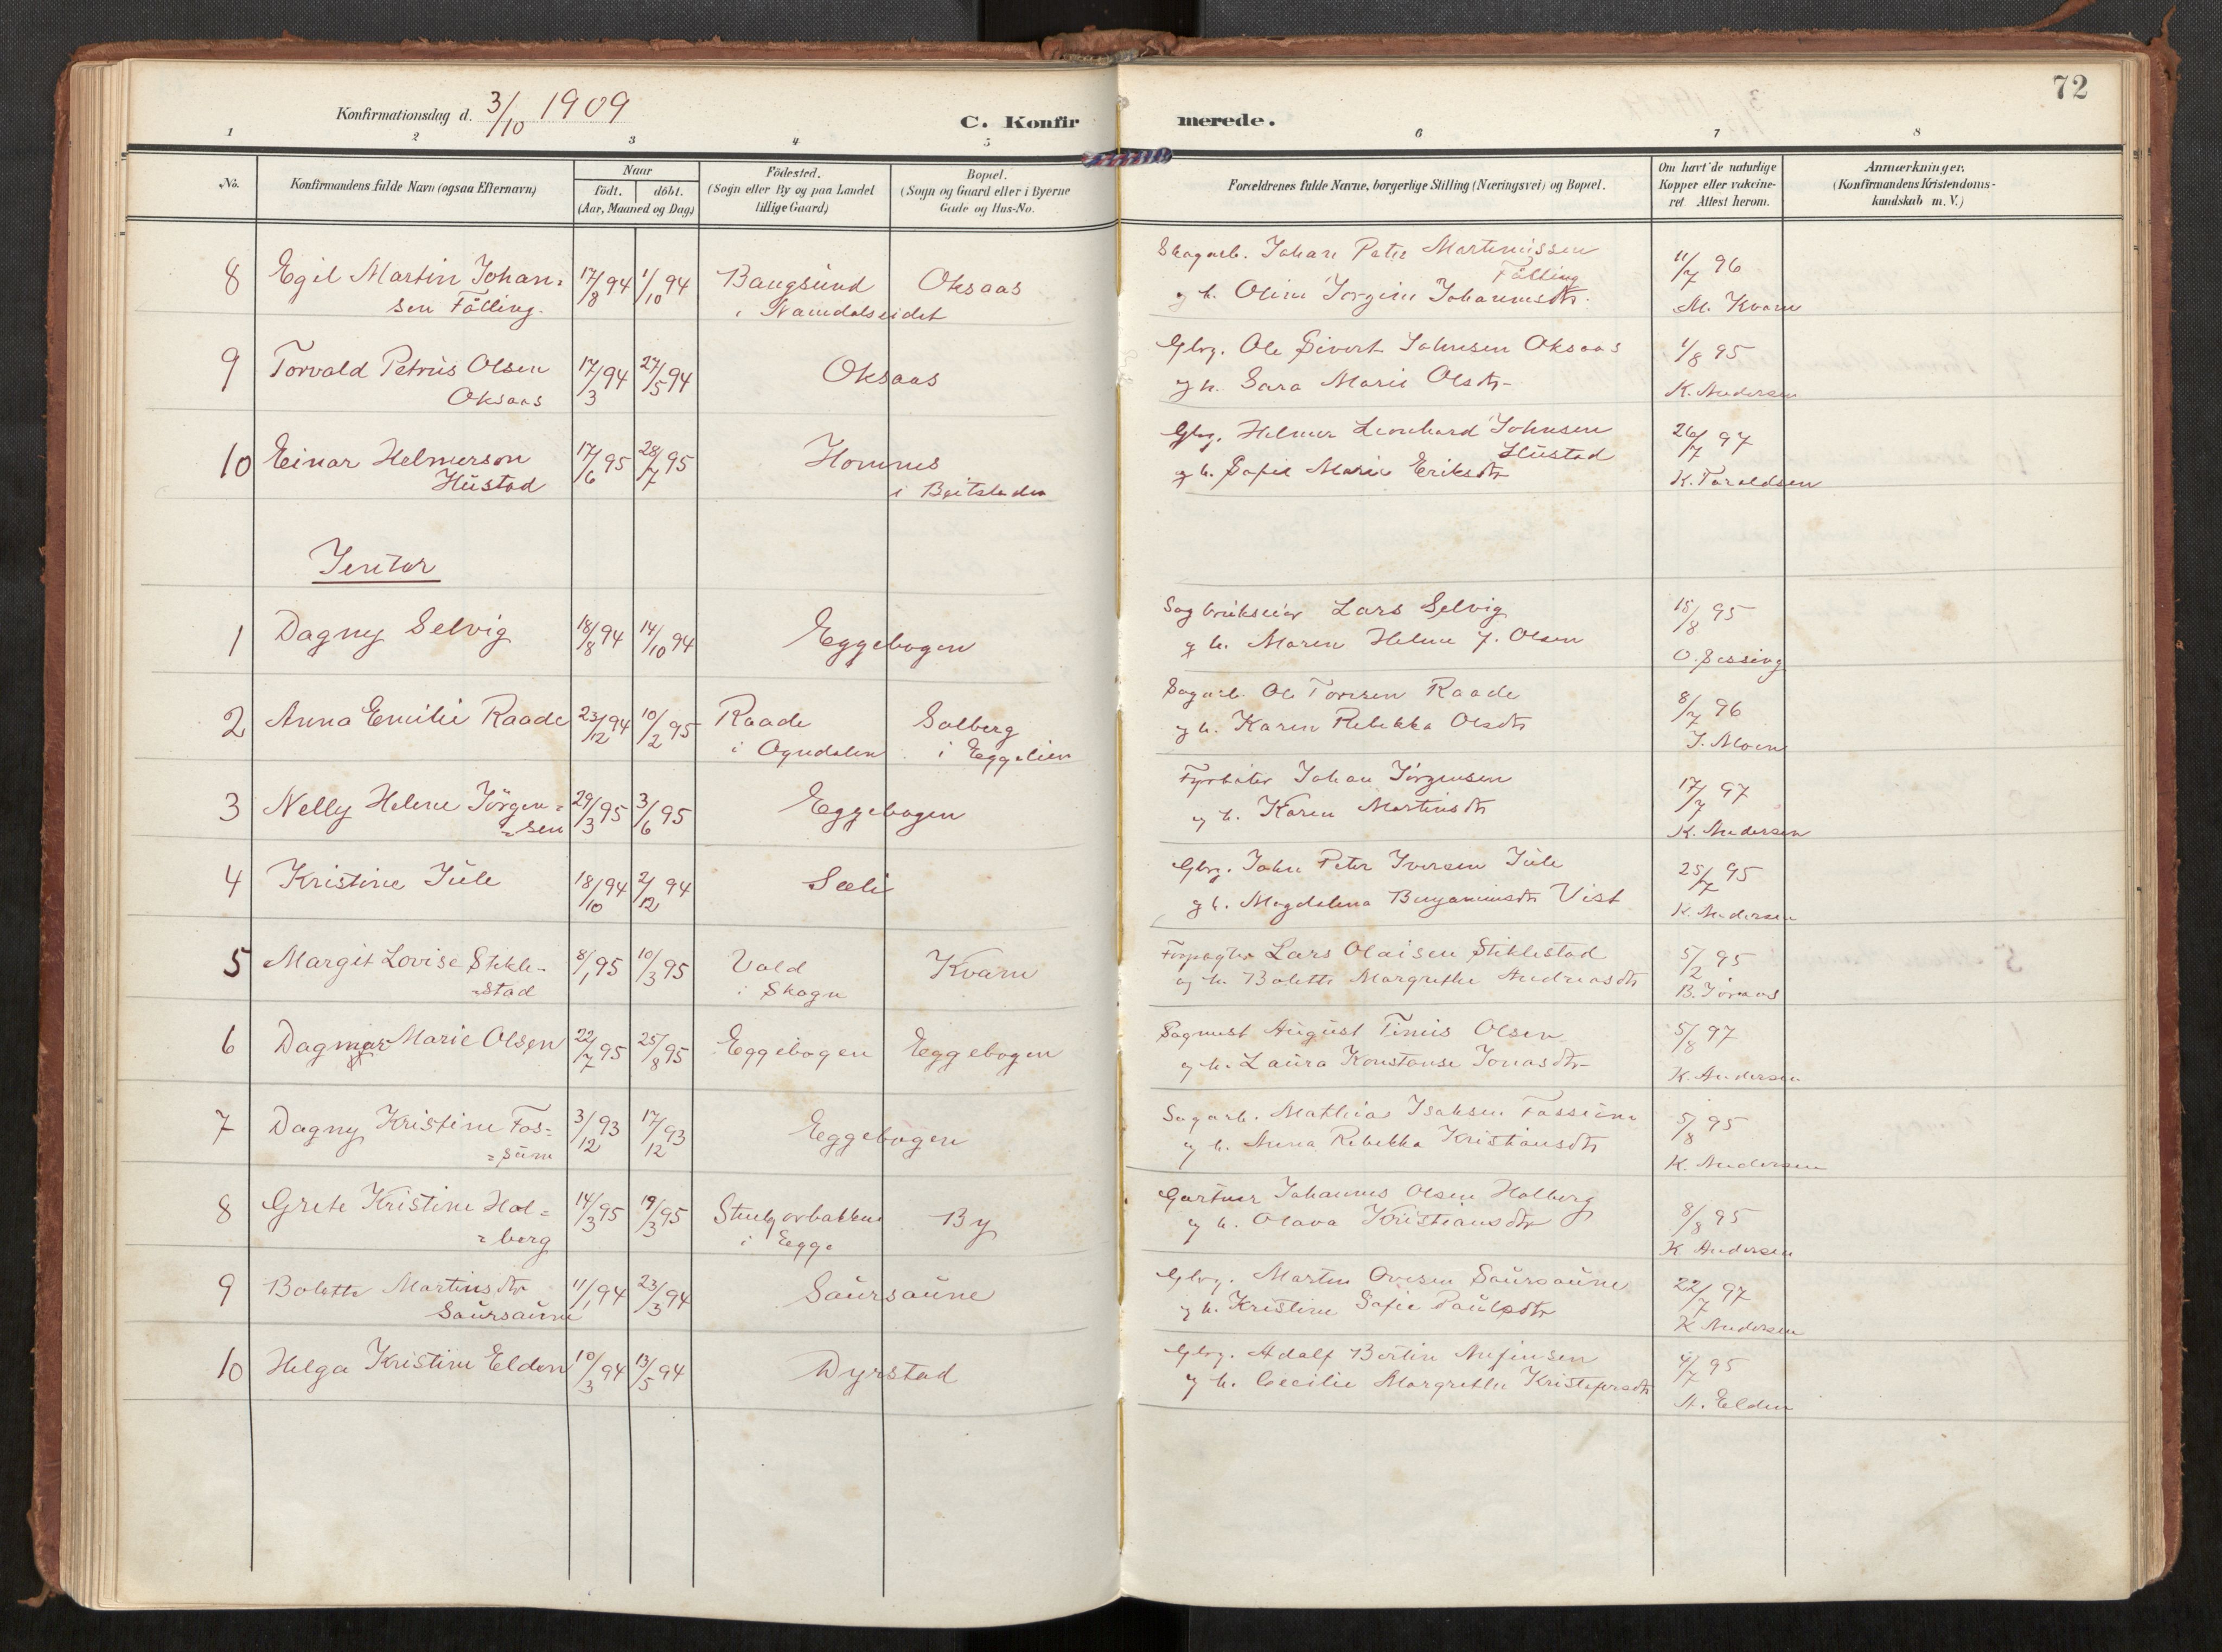 72
Konfirmationsdag d. 3/10 1909
C. Konfirmerede.
1 2 3 4 5 6 7 8
No.
Konfirmandens fulde Navn (ogsaa Efternavn)
Naar
født. døbt.
(Aar, Maaned og Dag)
Fødested.
(Sogn eller By og paa Landet
tillige Gaard)
Bopæl.
(Sogn og Gaard eller i Byerne
Gade og Hus-No.
Forældrenes fulde Navne, borgerlige Stilling (Næringsvei) og Bopæl.
Om havt de naturlige
Kopper eller vakcine-
ret. Attest herom.
Anmærkninger.
(Konfirmandens Kristendoms-
kundskab m. V.)
8 Egil Martin Johan- 17/8 94 1/10 94 Bangsund Oksaas Skogarb. Johan Peter Martinussen 11/7 96
sen Fölling. i Namdalseidet Fölling
og h. Oline Jorgine Johannesdtr. M. Kvam
9 Torvald Petrus Olsen 17/3 94 27/5 94 Oksaas Gbrg. Ole Sivert Johnsen Oksaas 1/8 95
Oksaas og h. Sara Marie Olsdtr K. Andersen
10 Einar Helmerson 17/6 95 28/7 95 Homnes Gbrg. Helmer Leonhard Johnsen 26/7 97
Hüstad i Beitstaden Hüstad
og h. Sofie Marie Eriksdtr K. Taraldsen
Jentor
1 Dagny Selvig 18/8 94 14/10 94 Eggebogen Sagbrukseier Lars Selvig 15/8 95
og h. Maren Helene f. Olsen O. Sessing
2 Anna Emilie Raade 23/12 94 10/2 95 Raade Solberg Sagarb. Ole Toresen Raade 8/7 96
i Ogndalen i Eggelien og h. Karen Rebekka Olsdtr J. Moen
3 Nelly Helene Jörgen- 29/3 95 3/6 95 Eggebogen Fyrböter Johan Jörgensen 17/7 97
=sen og h. Karen Martinsdtr K. Andersen
4 Kristine Jüle 18/10 94 2/12 94 Sæli Gbrg. John Peter Iversen Jüle 25/7 95
og h. Magdalena Benjaminsdtr Vist K. Andersen
5 Margit Lovise Stikle- 8/1 95 10/3 95 Vold Kvam Forpagter Lars Olaisen Stiklestad 5/2 95
=stad i Skogn og h. Bolette Margrethe Andreasdtr
6 Dagmar Marie Olsen 22/7 95 25/8 95 Eggebogen Eggebogen Sagmest August Tinus Olsen 5/8 97
og h. Laura Konstanse Jonasdtr K. Andersen
7 Dagny Kristine Fos- 3/12 93 17/12 93 Eggebogen Sagarb. Mathias Isaksen Fossüm 5/8 95
=süm og h. Anna Rebekka Kristiansdtr K. Andersen
8 Grete Kristine Hol= 14/3 95 19/3 95 By Gartner Johannes Olsen Holberg 8/8 95
=berg i Egge og h. Olava Kristiansdtr K Andersen
9 Bolette Martinsdtr 11/1 94 23/3 94 Saursaune Gbrg. Martin Ovesen Saursaune 22/7 97
Saursaune og h. Kristine Sofie Paulsdtr K Andersen
10 Helga Kristine Elden 10/3 94 13/5 94 Dyrstad Gbrg. Adolf Bertin Anfinsen 4/7 95
og h. Cecilie Margrethe Kristofersdtr A. Elden